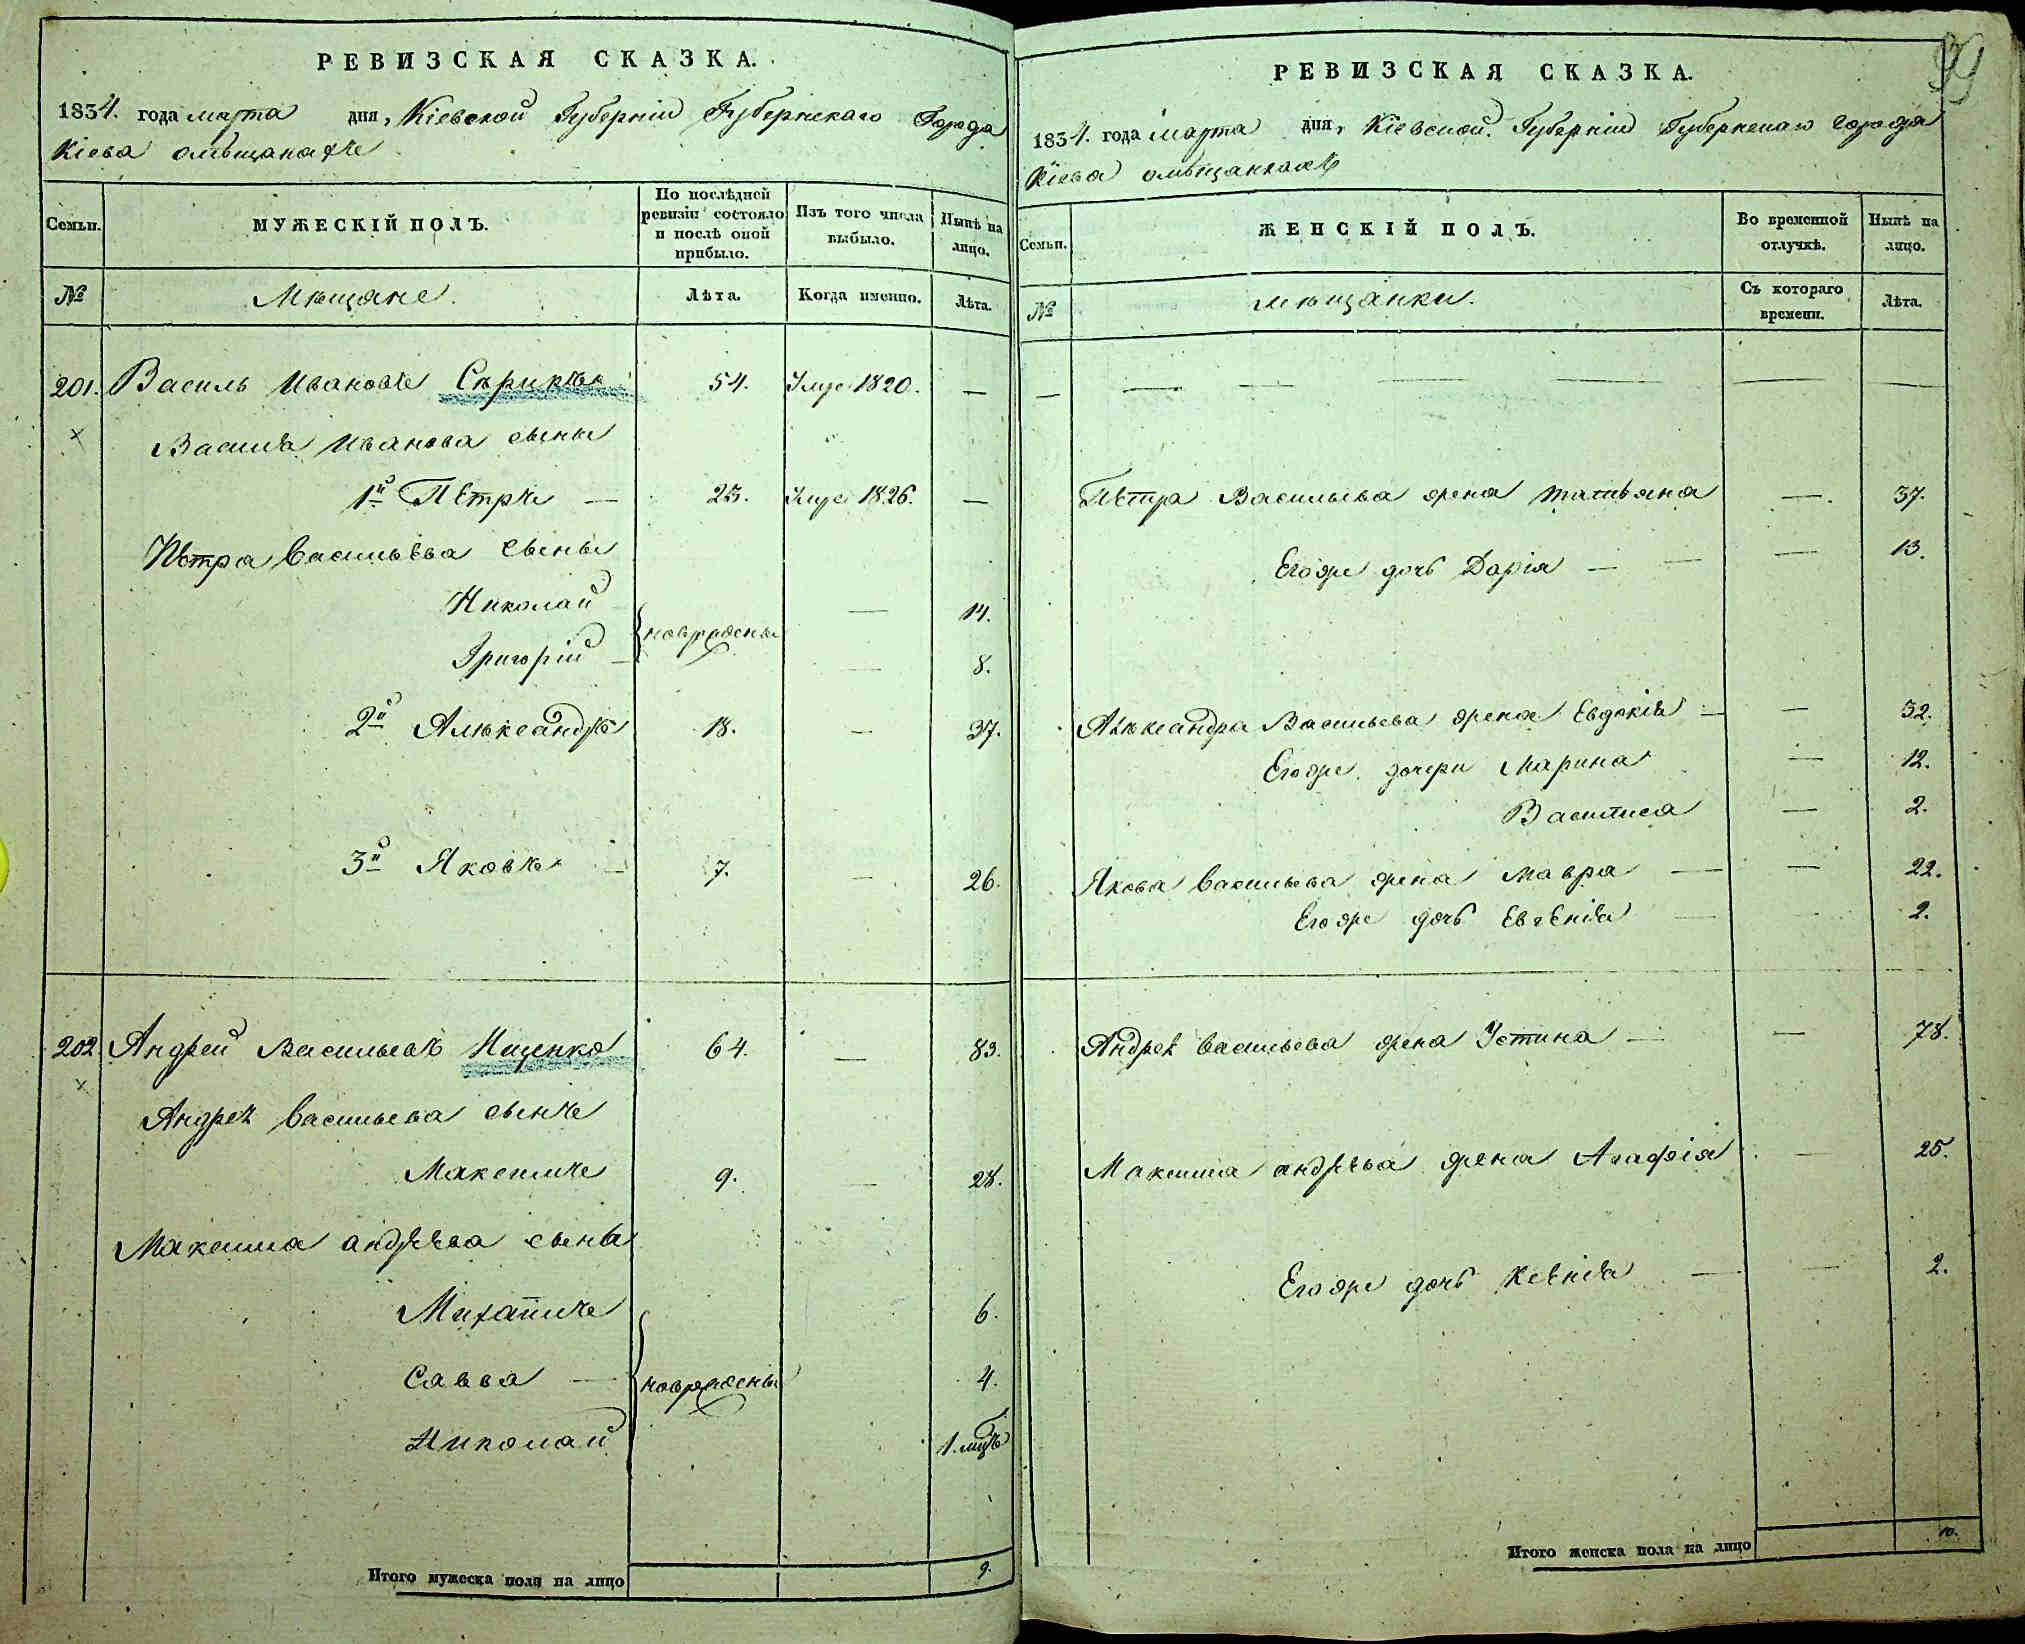 РЕВИЗСКАЯ СКАЗКА.
1834. года марта дня, Кіевской Губерніи Губернскаго Города
Кіева омѣщанахъ
Семьи.
МУЖЕСКІЙ ПОЛЪ.
По послѣдней ревизіи состояло и послѣ оной прибыло.
Изъ того числа выбыло.
Нынѣ на лицо.
№
Мѣщане.
Лѣта.
Когда именно.
Лѣта.
201. Василь Ивановъ 54. Умре 1820. —
Василія Иванова сыны
1й Пѣтръ — 25. Умре 1826. —
Пѣтра Васильѣва сыны
Николай — 14.
Григорій — новрождены — 8.
2й Алѣксандръ 18. — 37.
3й Яковъ — 7. — 26.
202 Андрей Васильевъ Ищенко 64. — 83.
Андрея Васильева сынъ
Максимъ 9. — 28.
Максима андрѣева сыны
Михаилъ 6.
Савва — новрождены 4.
Николай 1. мцъ
Итого мужеска пола на лицо 9.
99
РЕВИЗСКАЯ СКАЗКА.
1834. года марта дня, Кіевской Губерніи Губернскаго города
Кіева омѣщанкахъ
Семьи.
ЖЕНСКІЙ ПОЛЪ.
Во временной отлучкѣ.
Нынѣ на лицо.
№
мѣщанки.
Съ котораго времени.
Лѣта.
— — — — — — —
Пѣтра Васильева жена татьяна — 37.
Егоже дочь Дарія — — 13.
Алѣксандра Васильева жена Евдокія — — 32.
Егоже дочери Марина — 12.
Василиса — 2.
Якова Васильева жена Мавра — — 22.
Егоже дочь Евгѣнія — 2.
Андрея Васильева жена Устина — — 78.
Максима андрѣева жена Агафія — 25.
Егоже дочь Ксѣнія — — 2.
Итого женска пола на лицо 10.